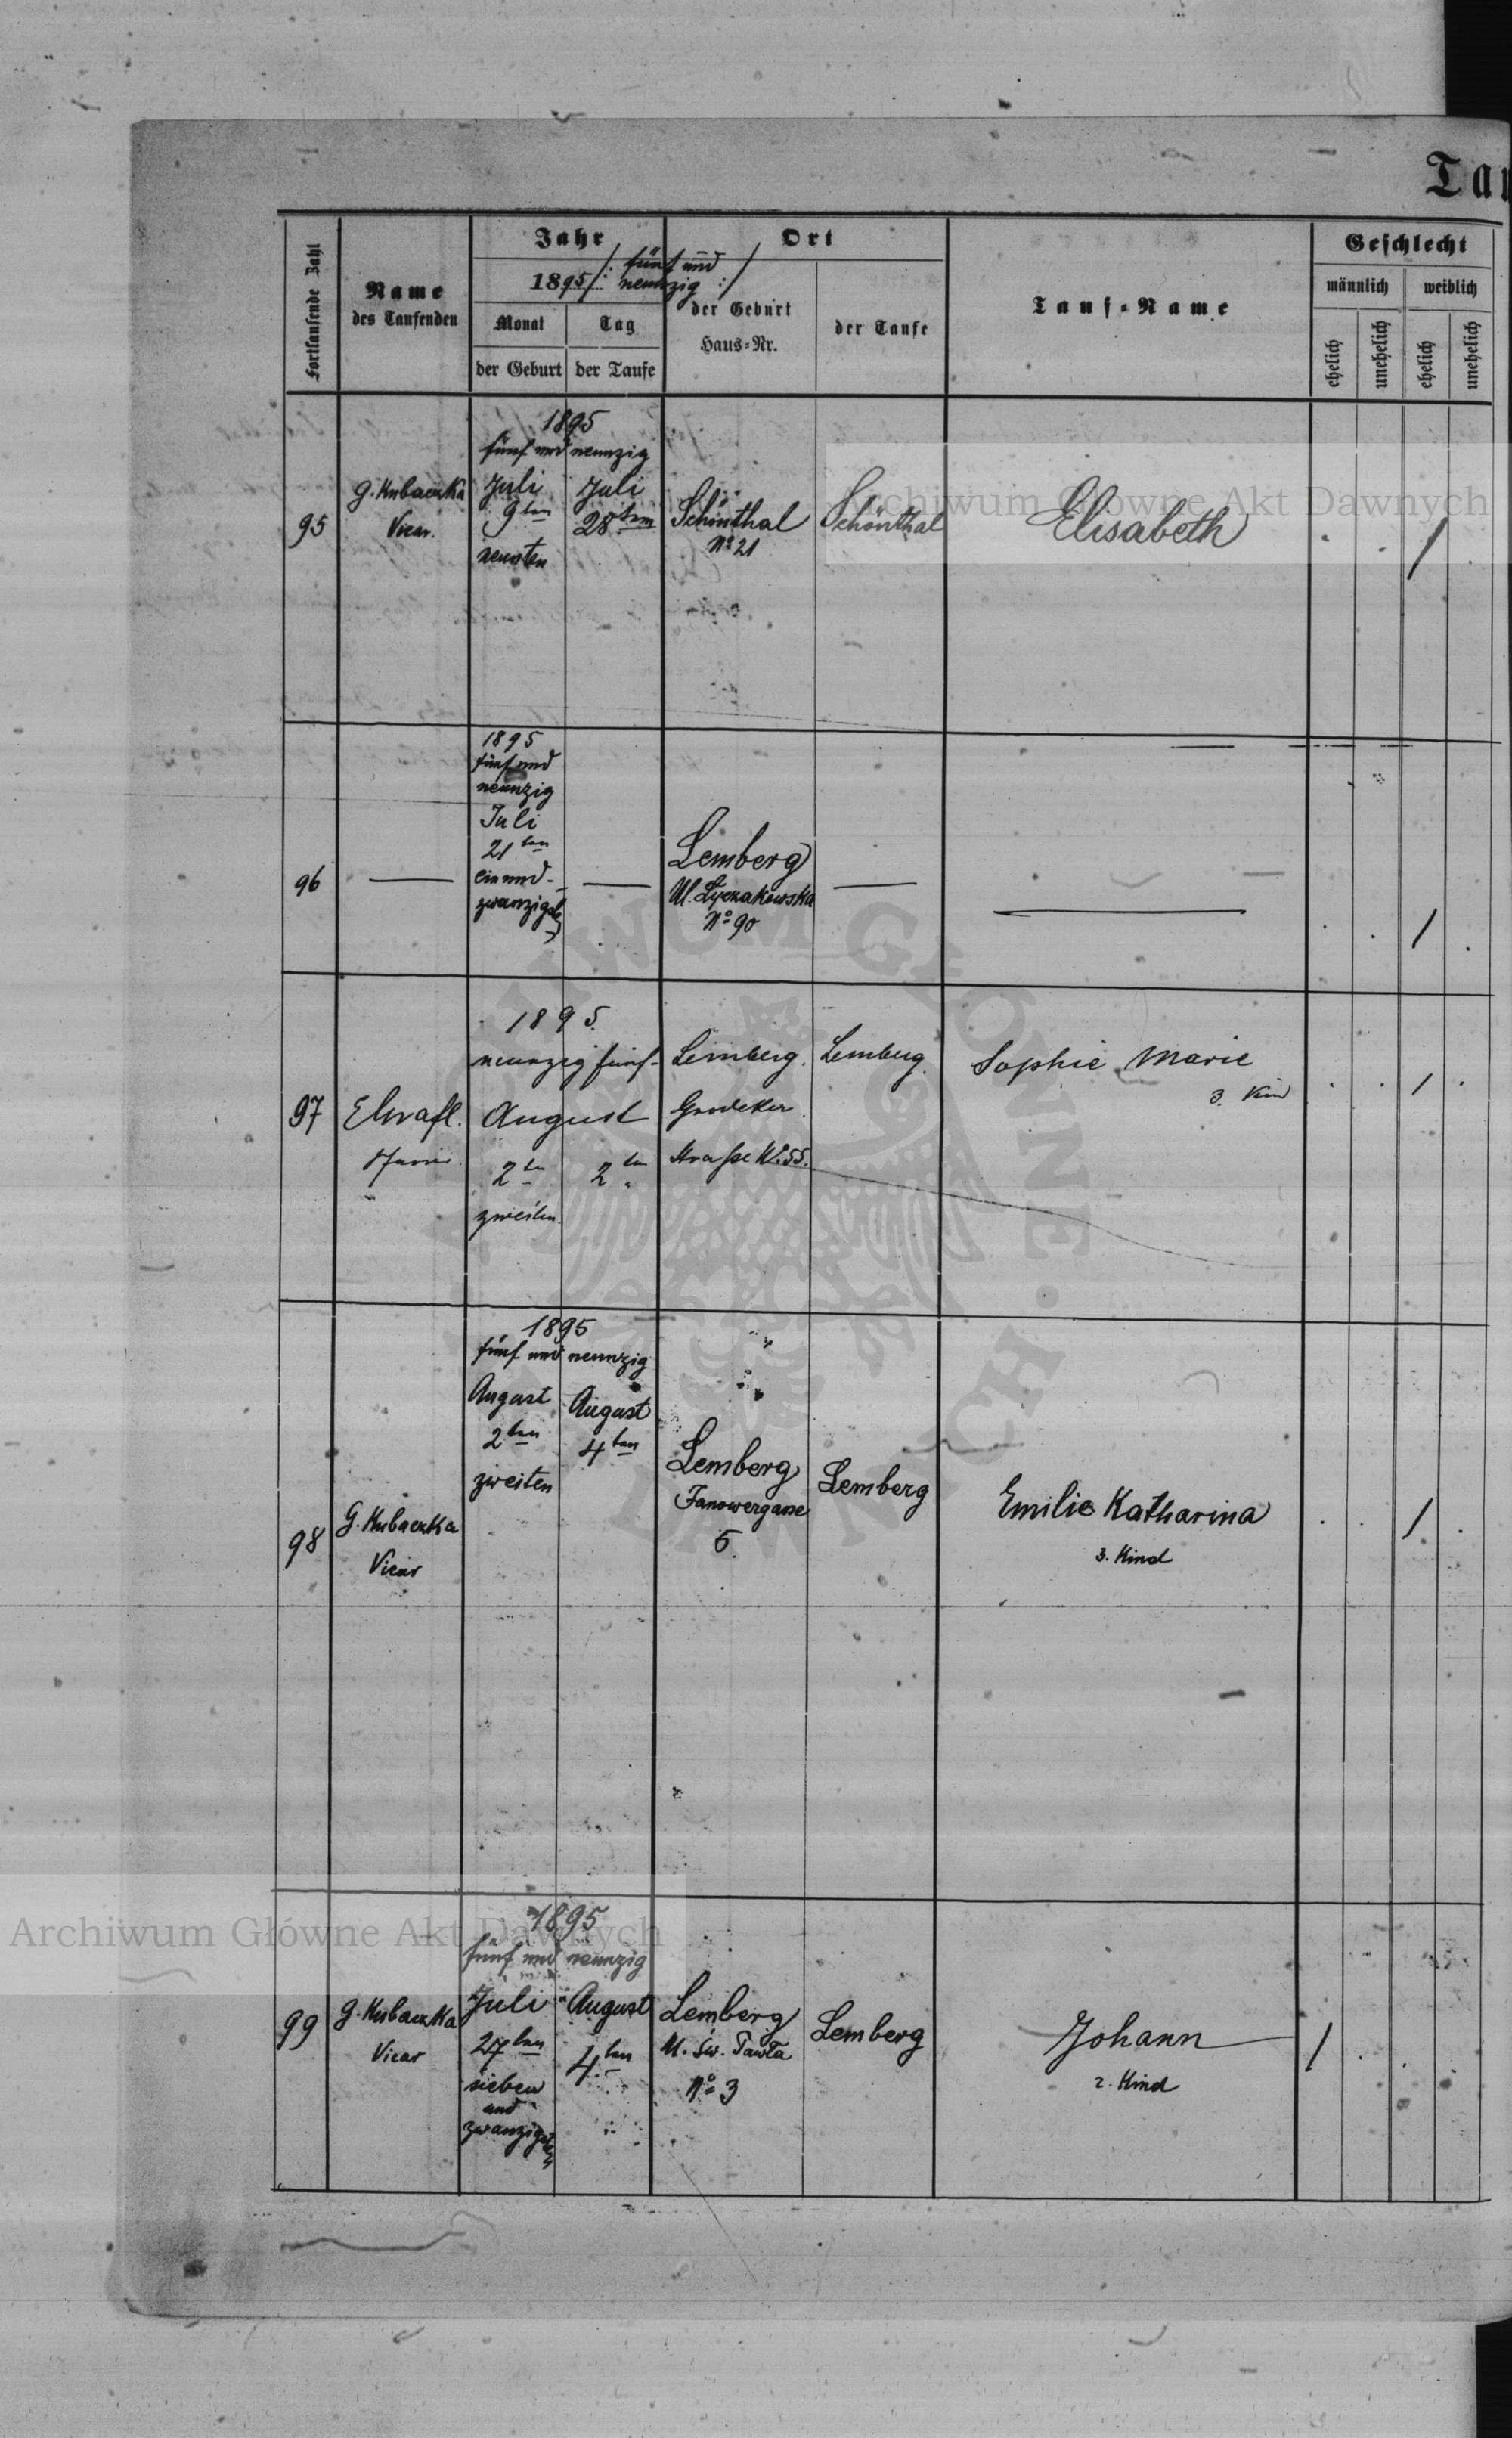 Tau
Fortlaufende Zahl
Name
des Taufenden
Jahr
1895 /: fünf und
neunzig :/
Monat
Tag
der Geburt
der Taufe
Ort
der Geburt
Haus-Nr.
der Taufe
Tauf-Name
Geschlecht
männlich
weiblich
ehelich
unehelich
ehelich
unehelich
95
G. Kubaczka
Vicar.
1895
fünf und neunzig
Juli
9ten
neunten
Juli
28ten
Schönthal
No 21
Schönthal
Elisabeth
/
96
1895
fünf und
neunzig
Juli
21ten
ein und-
zwanzigsten
Lemberg
Ul. Łyczakowska
No 90
/
97
1895.
neunzig fünf
August
2ten
zweiten
2ten
Lemberg.
Grodeker
Straße No 55.
Lemberg.
Sophie Marie
3. Kind
/
98
G. Kubaczka
Vicar
1895
fünf und neunzig
August
2ten
zweiten
August
4ten
Lemberg
Janowergasse
5.
Lemberg
Emilie Katharina
3. Kind
/
99
G. Kubaczka
Vicar
1895
fünf und neunzig
Juli
27ten
sieben
und
zwanzigsten
August
4ten
Lemberg
Ul. Św. Pawła
No 3
Lemberg
Johann
2. Kind
/
Archiwum Główne Akt Dawnych
Archiwum Główne Akt Dawnych